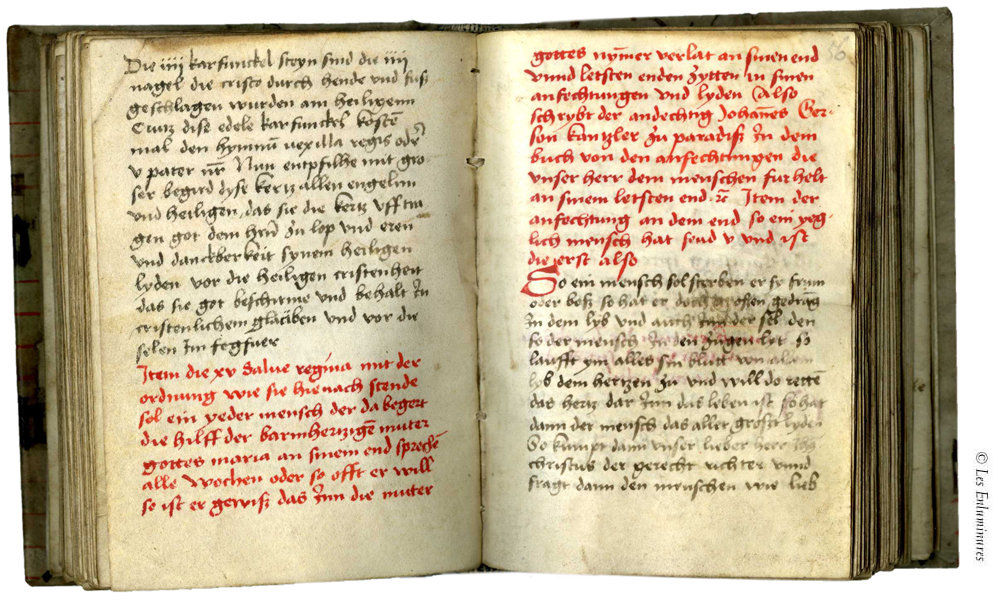 Die iiii karfunckel steyn sind die iiii
nagel die cristo durch hende und fuß
geschlagen wurden am heiligenn
Crutz dise edele karfunckel kostē
mal den hymnū vexilla regis odeꝛ
v pater nr̄ Nun entpfilhe mit gro
ser begird dyse kertz allen engelnn
und heiligen, das sie die kertz uff tra
gen got dem hrn̄ zu lop und eren
und danckberkeit synem heiligen
lyden vor die heiligen cristenheit
das sie got beschirme und behalt In
cristenlichem glauben und vor die
selen Im fegfuer
Item die xv Salue regina mit der
ordnung wie sie hienach stende
sol ein yeder mensch der da begert
die hilff der barmhertzigē muter
gottes maria an sinem end sprechē
alle wochen oder so offt er will
so ist er gewiß das Inn die muter
56
gottes nym̄er verlat an sinen end
unnd letsten enden zytten in sinen
anfechtungen und lyden Also
schrybt der andechtig Johan̄es Ger-
son kantzler zu pariß In dem
buch von den anfechtungen die
unser herr dem menschen fur helt
an sinem letsten end ⁊c Item der
anfechtung an dem end so ein yeg-
lich mensch hat send v und ist
die erst also
So ein mensch sol sterben er sy frum
oder beß so hat er doch grosen gedrāg
In dem lyb und auch Inn der sel den
so der mensch In den zugen lyt so
laufft ym alles sin blutt von allem
lyb dem hertzen zu und will do rettē
das hertz dar Inn das leben ist so hat
dann der mensch das aller grost lyden
So kumpt dann unser lieber herr Ihs̄
christus der gerecht richter unnd
fragt dann den menschen wie lieb
© Les Enluminures